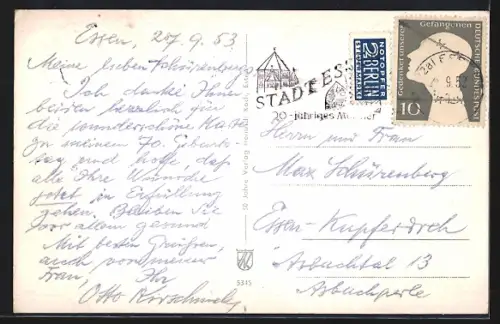 Essen, 27.9.53
Meine lieben Schürenbergs
Ich danke Ihnen
beiden herzlich für
die wunderschöne Karte
zu meinem 70. Geburts-
tag und hoffe, daß
alle Ihre Wünsche
jetzt in Erfüllung
gehen. Bleiben Sie
vor allem gesund
Mit besten Grüßen,
auch von meiner
Frau, Ihr
Otto
STADT ESSEN
-jähriges
NOTOPFER
2 BERLIN
STEUERMARKE
Gedenket unserer
Gefangenen
DEUTSCHE BUNDESPOST
10
Herrn und Frau
Max Schürenberg
Essen-Kupferdreh
Asbachtal 13
Asbachperle
50 Jahre Verlag
5315